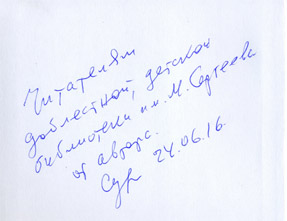 Читателям
доблестной, детской
библиотеки им. М. Сергеева
от автора.
24.06.16.